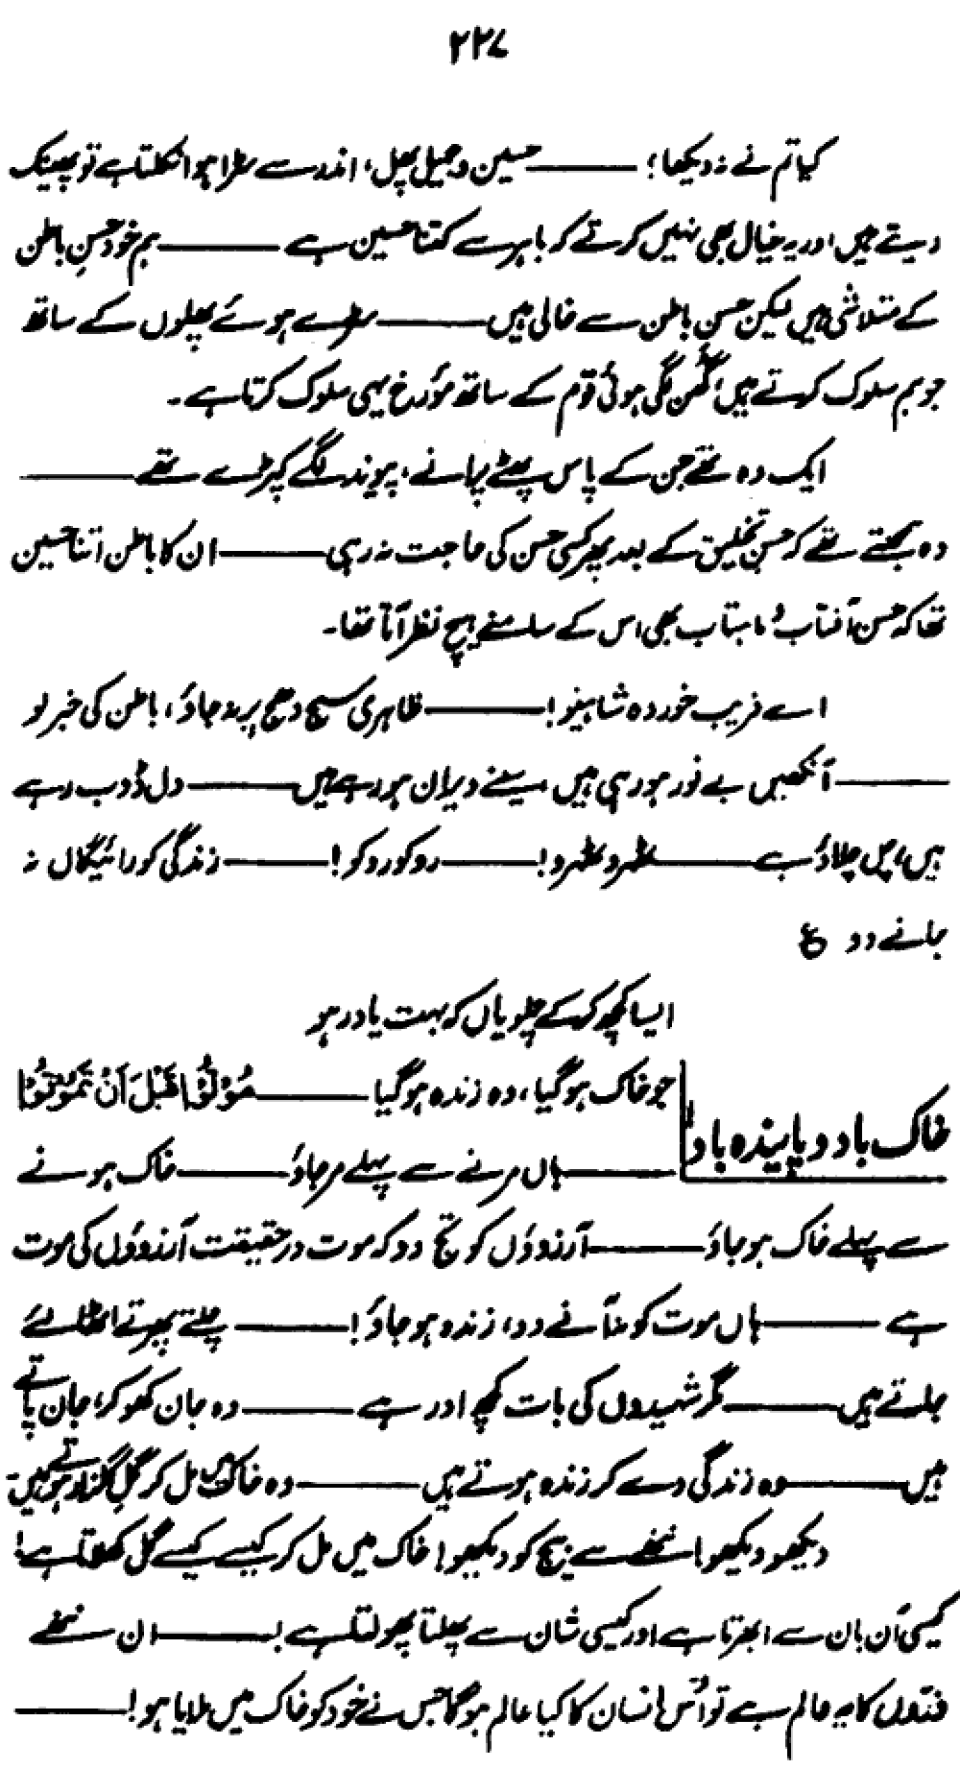 ۲۲۷
کیا تم نے نہ دیکھا؛ ——— حسین و جمیل پھل، اندر سے سڑا ہوا نکلتا ہے تو پھینک
دیتے ہیں اور یہ خیال بھی نہیں کرتے کہ باہر سے کتنا حسین ہے ——— ہم خود حسنِ باطن
کے متلاشی ہیں لیکن حسنِ باطن سے خالی ہیں ——— سڑے ہوئے پھلوں کے ساتھ
جو ہم سلوک کرتے ہیں؛ گھُن لگی ہوئی قوم کے ساتھ مؤرخ یہی سلوک کرتا ہے۔
ایک وہ تھے جن کے پاس پھٹے پرانے، پیوند لگے کپڑے تھے ———
وہ سمجھتے تھے کہ حسنِ تخلیق کے بعد پھر کسی حسن کی حاجت نہ رہی ——— ان کا باطن اتنا حسین
تھا کہ حسن آفتاب و ماہتاب بھی اس کے سامنے ہیچ نظر آتا تھا۔
اے فریب خوردہ شاہینو! ——— ظاہری سج دھج پر نہ جاؤ، باطن کی خبر لو
——— آنکھیں بے نور ہو رہی ہیں، سینے ویران ہو رہے ہیں ——— دل ڈوب رہے
ہیں، چل چلاؤ ہے ——— ٹھہرو ٹھہرو! ——— روکو روکو! ——— زندگی کو رائیگاں نہ
جانے دو ع
ایسا کچھ کر کے چلو یاں کہ بہت یاد رہو
خاک باد و پایندہ باد
جو خاک ہو گیا، وہ زندہ ہو گیا ——— مُوْتُوْا قَبْلَ اَنْ تَمُوْتُوْا
——— ہاں مرنے سے پہلے مر جاؤ ——— خاک ہونے
سے پہلے خاک ہو جاؤ ——— آرزوؤں کو تج دو کہ موت در حقیقت آرزوؤں کی موت
ہے ——— ہاں موت کو نہ آنے دو، زندہ ہو جاؤ! ——— چلتے پھرتے اٹھا لئے
جاتے ہیں ——— مگر شہیدوں کی بات کچھ اور ہے ——— وہ جان کھو کر، جان پاتے
ہیں ——— وہ زندگی دے کر زندہ ہوتے ہیں ——— وہ خاک میں مل کر گلِ گلزار ہوتے ہیں۔
دیکھو دیکھو! ننھے سے بیج کو دیکھو! خاک میں مل کر کیسے کیسے گل کھلاتا ہے!
کیسی آن بان سے ابھرتا ہے اور کیسی شان سے پھلتا پھولتا ہے! ——— ان ننھے
ذروں کا یہ عالم ہے تو اُس انسان کا کیا عالم ہو گا جس نے خود کو خاک میں ملایا ہو! ———